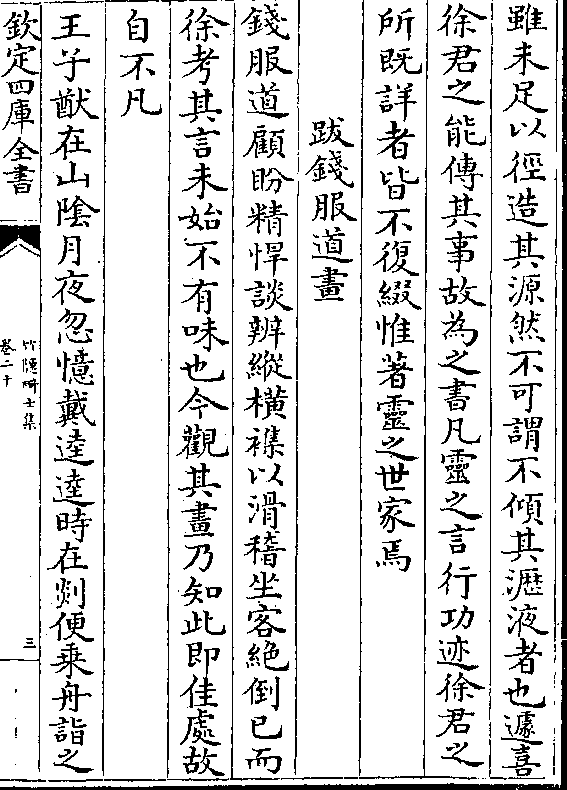 雖未足以徑造其源然不可謂不傾其瀝液者也遽喜
徐君之能傳其事故為之書凡靈之言行功迹徐君之
所既詳者皆不復綴惟著靈之世家焉
跋錢服道畫
錢服道顧盼精悍談辨縱横襍以滑稽坐客絶倒已而
徐考其言未始不有味也今觀其畫乃知此即佳處故
自不凡
王子猷在山隂月夜忽憶戴逵逵時在剡便乗舟詣之
欽定四庫全書
竹隠畸士集
卷二十
三